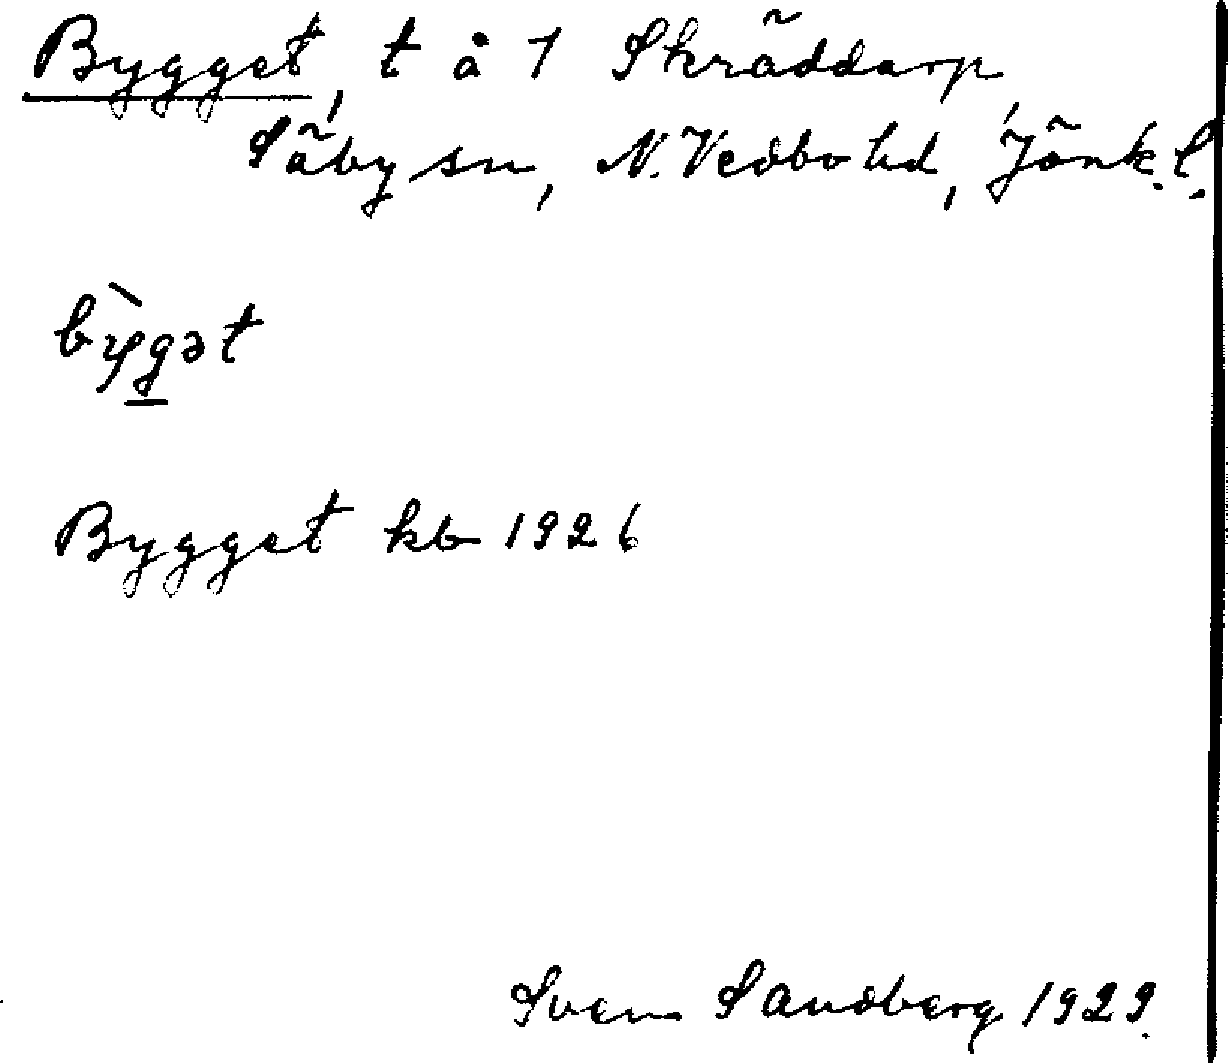 Bygget, t å 1 Skräddarp,
Säby sn, N. Vedbo hd, Jönk. l.
bỳgət
Bygget kb 1926
Sven Sandberg 1929.